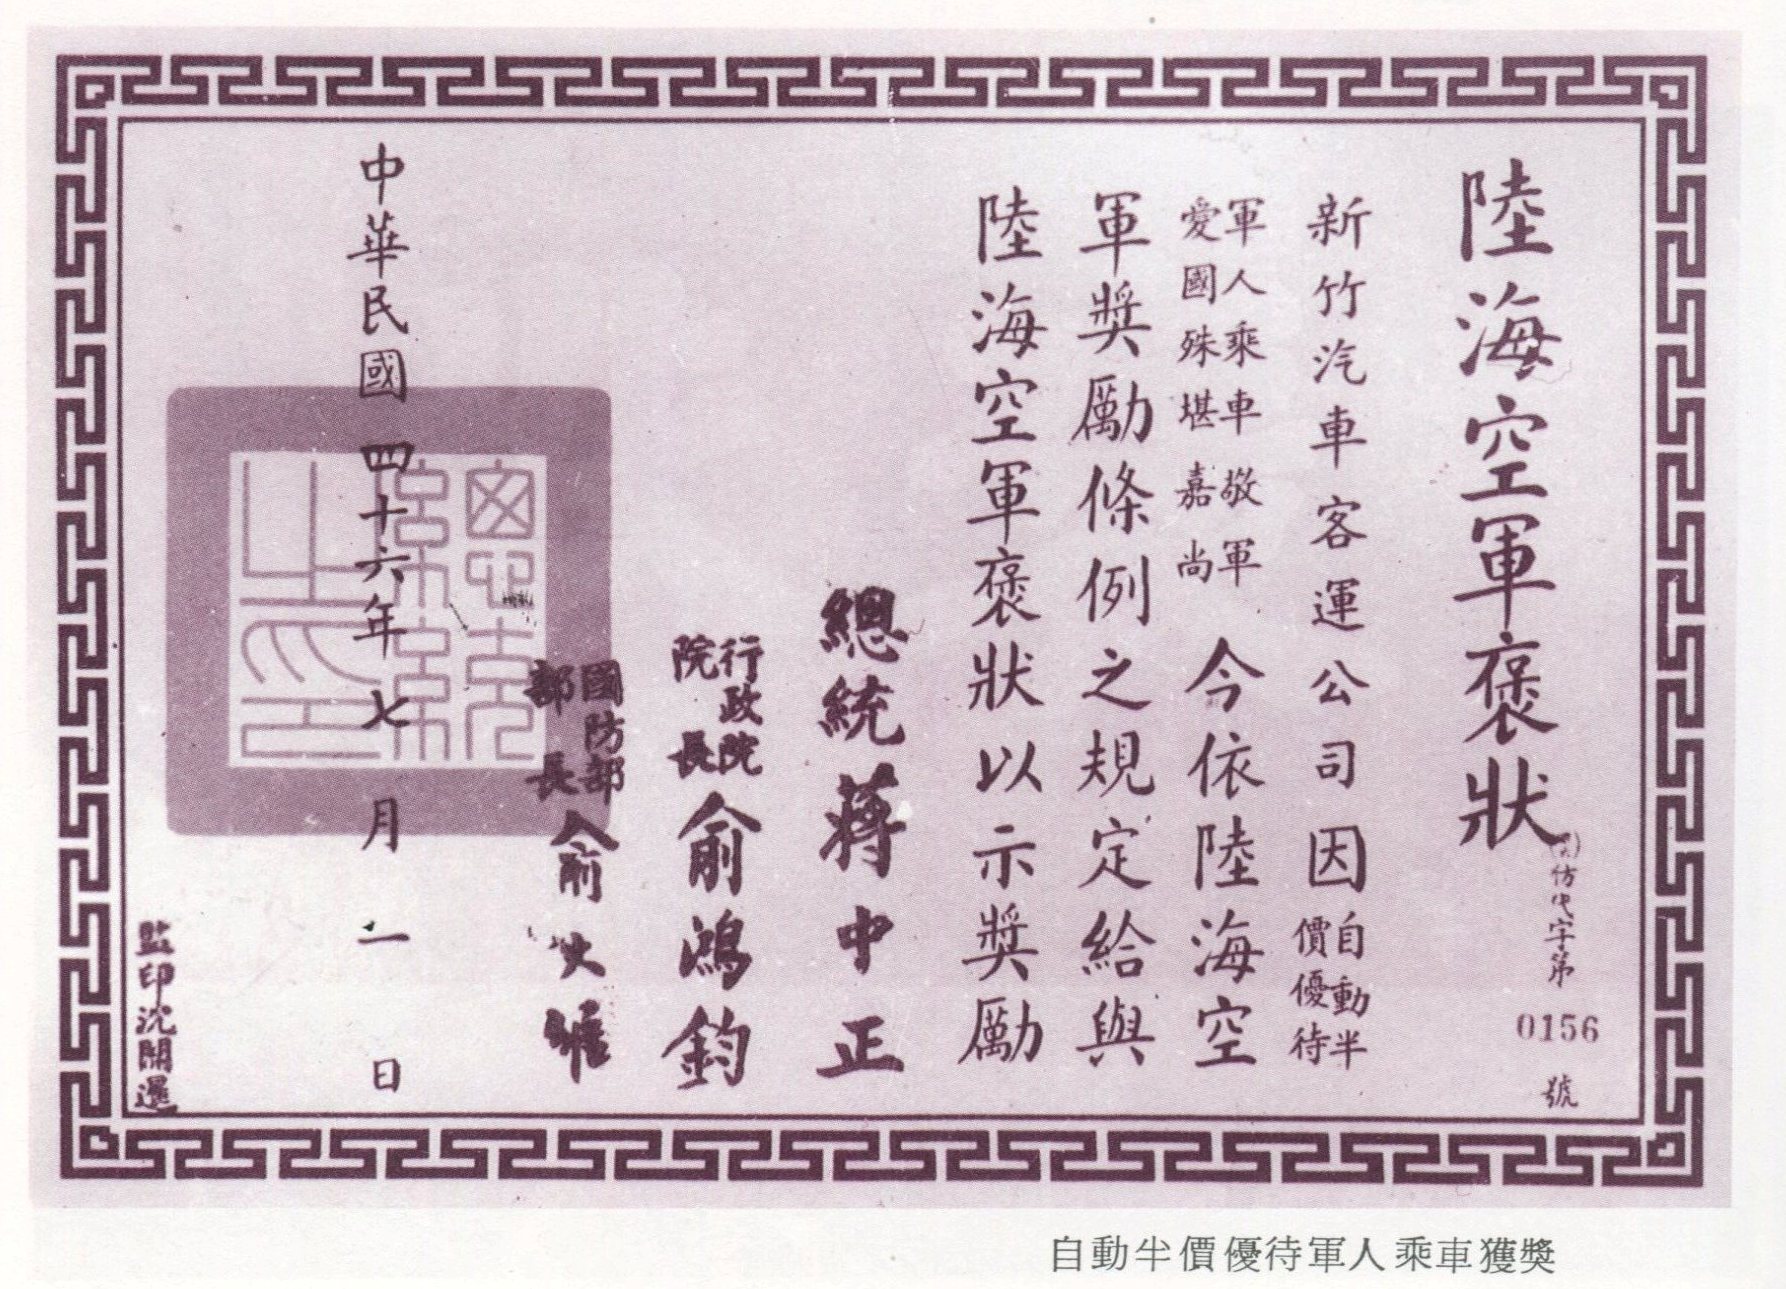 陸海空軍褒狀
仿屯字第
0156
號
新竹汽車客運公司因自動半
價優待
軍人乘車敬軍
愛國殊堪嘉尚
今依陸海空
軍獎勵條例之規定給與
陸海空軍褒狀以示獎勵
總統蔣中正
行政院
院長俞鴻鈞
國防部
部長俞大維
中華民國四十六年七月一日
總統
之印
監印沈開邏
自動半價優待軍人乘車獲獎